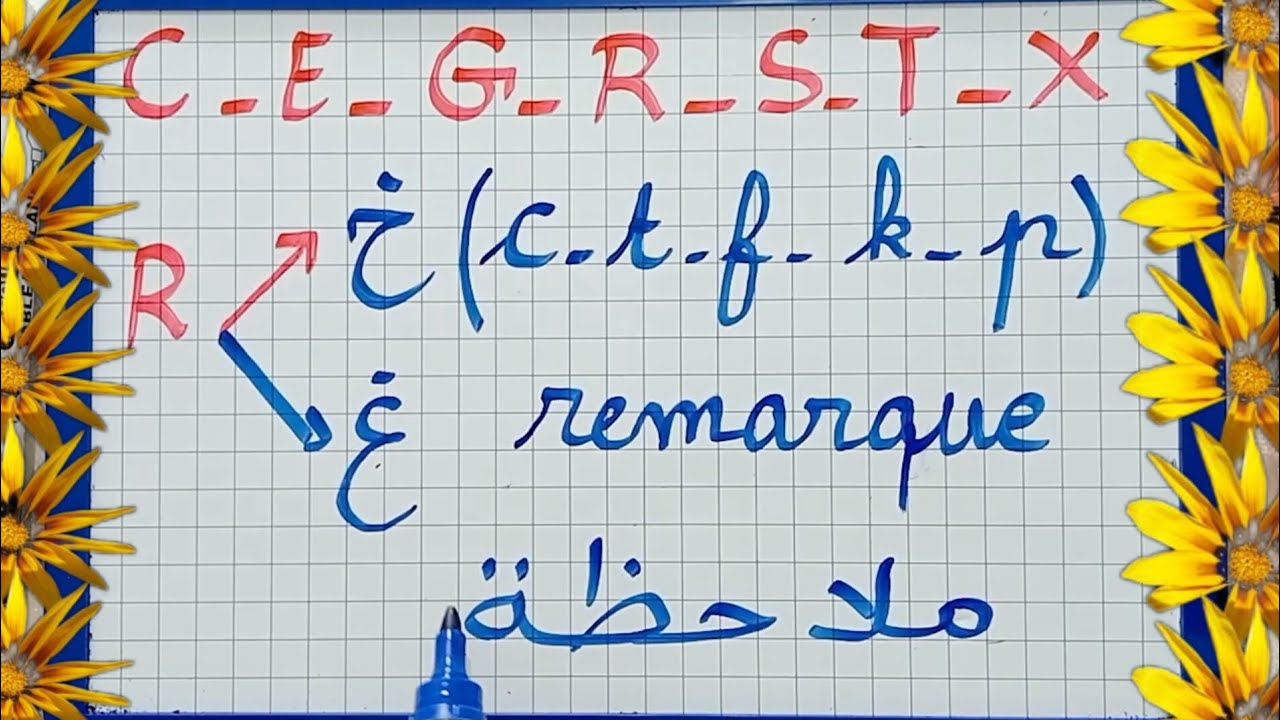 C - E - G - R - S - T - X
خ (c - t - f - k - p)
R
غ remarque
ملاحظة